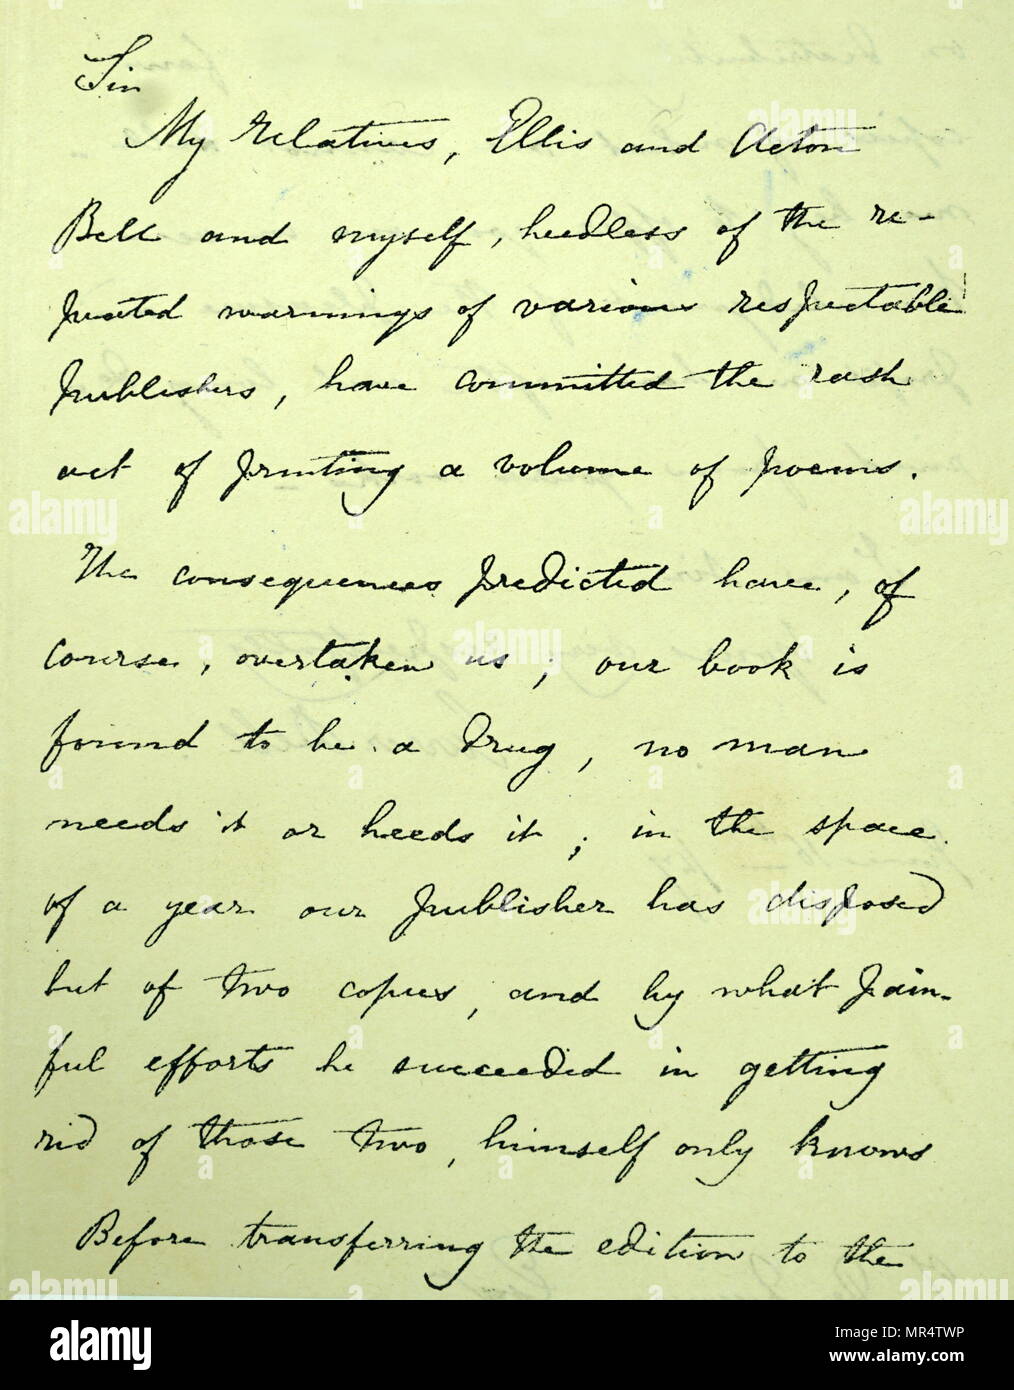 Sir
My relatives, Ellis and Acton
Bell and myself, heedless of the re-
peated warnings of various respectable
publishers, have committed the rash
act of printing a volume of poems.
The consequences predicted have, of
course, overtaken us; our book is
found to be a drug, no man
needs it or heeds it; in the space
of a year our publisher has disposed
but of two copies, and by what pain-
ful efforts he succeeded in getting
rid of those two, himself only knows
Before transferring the edition to the
alamy
Image ID: MR4TWP
www.alamy.com